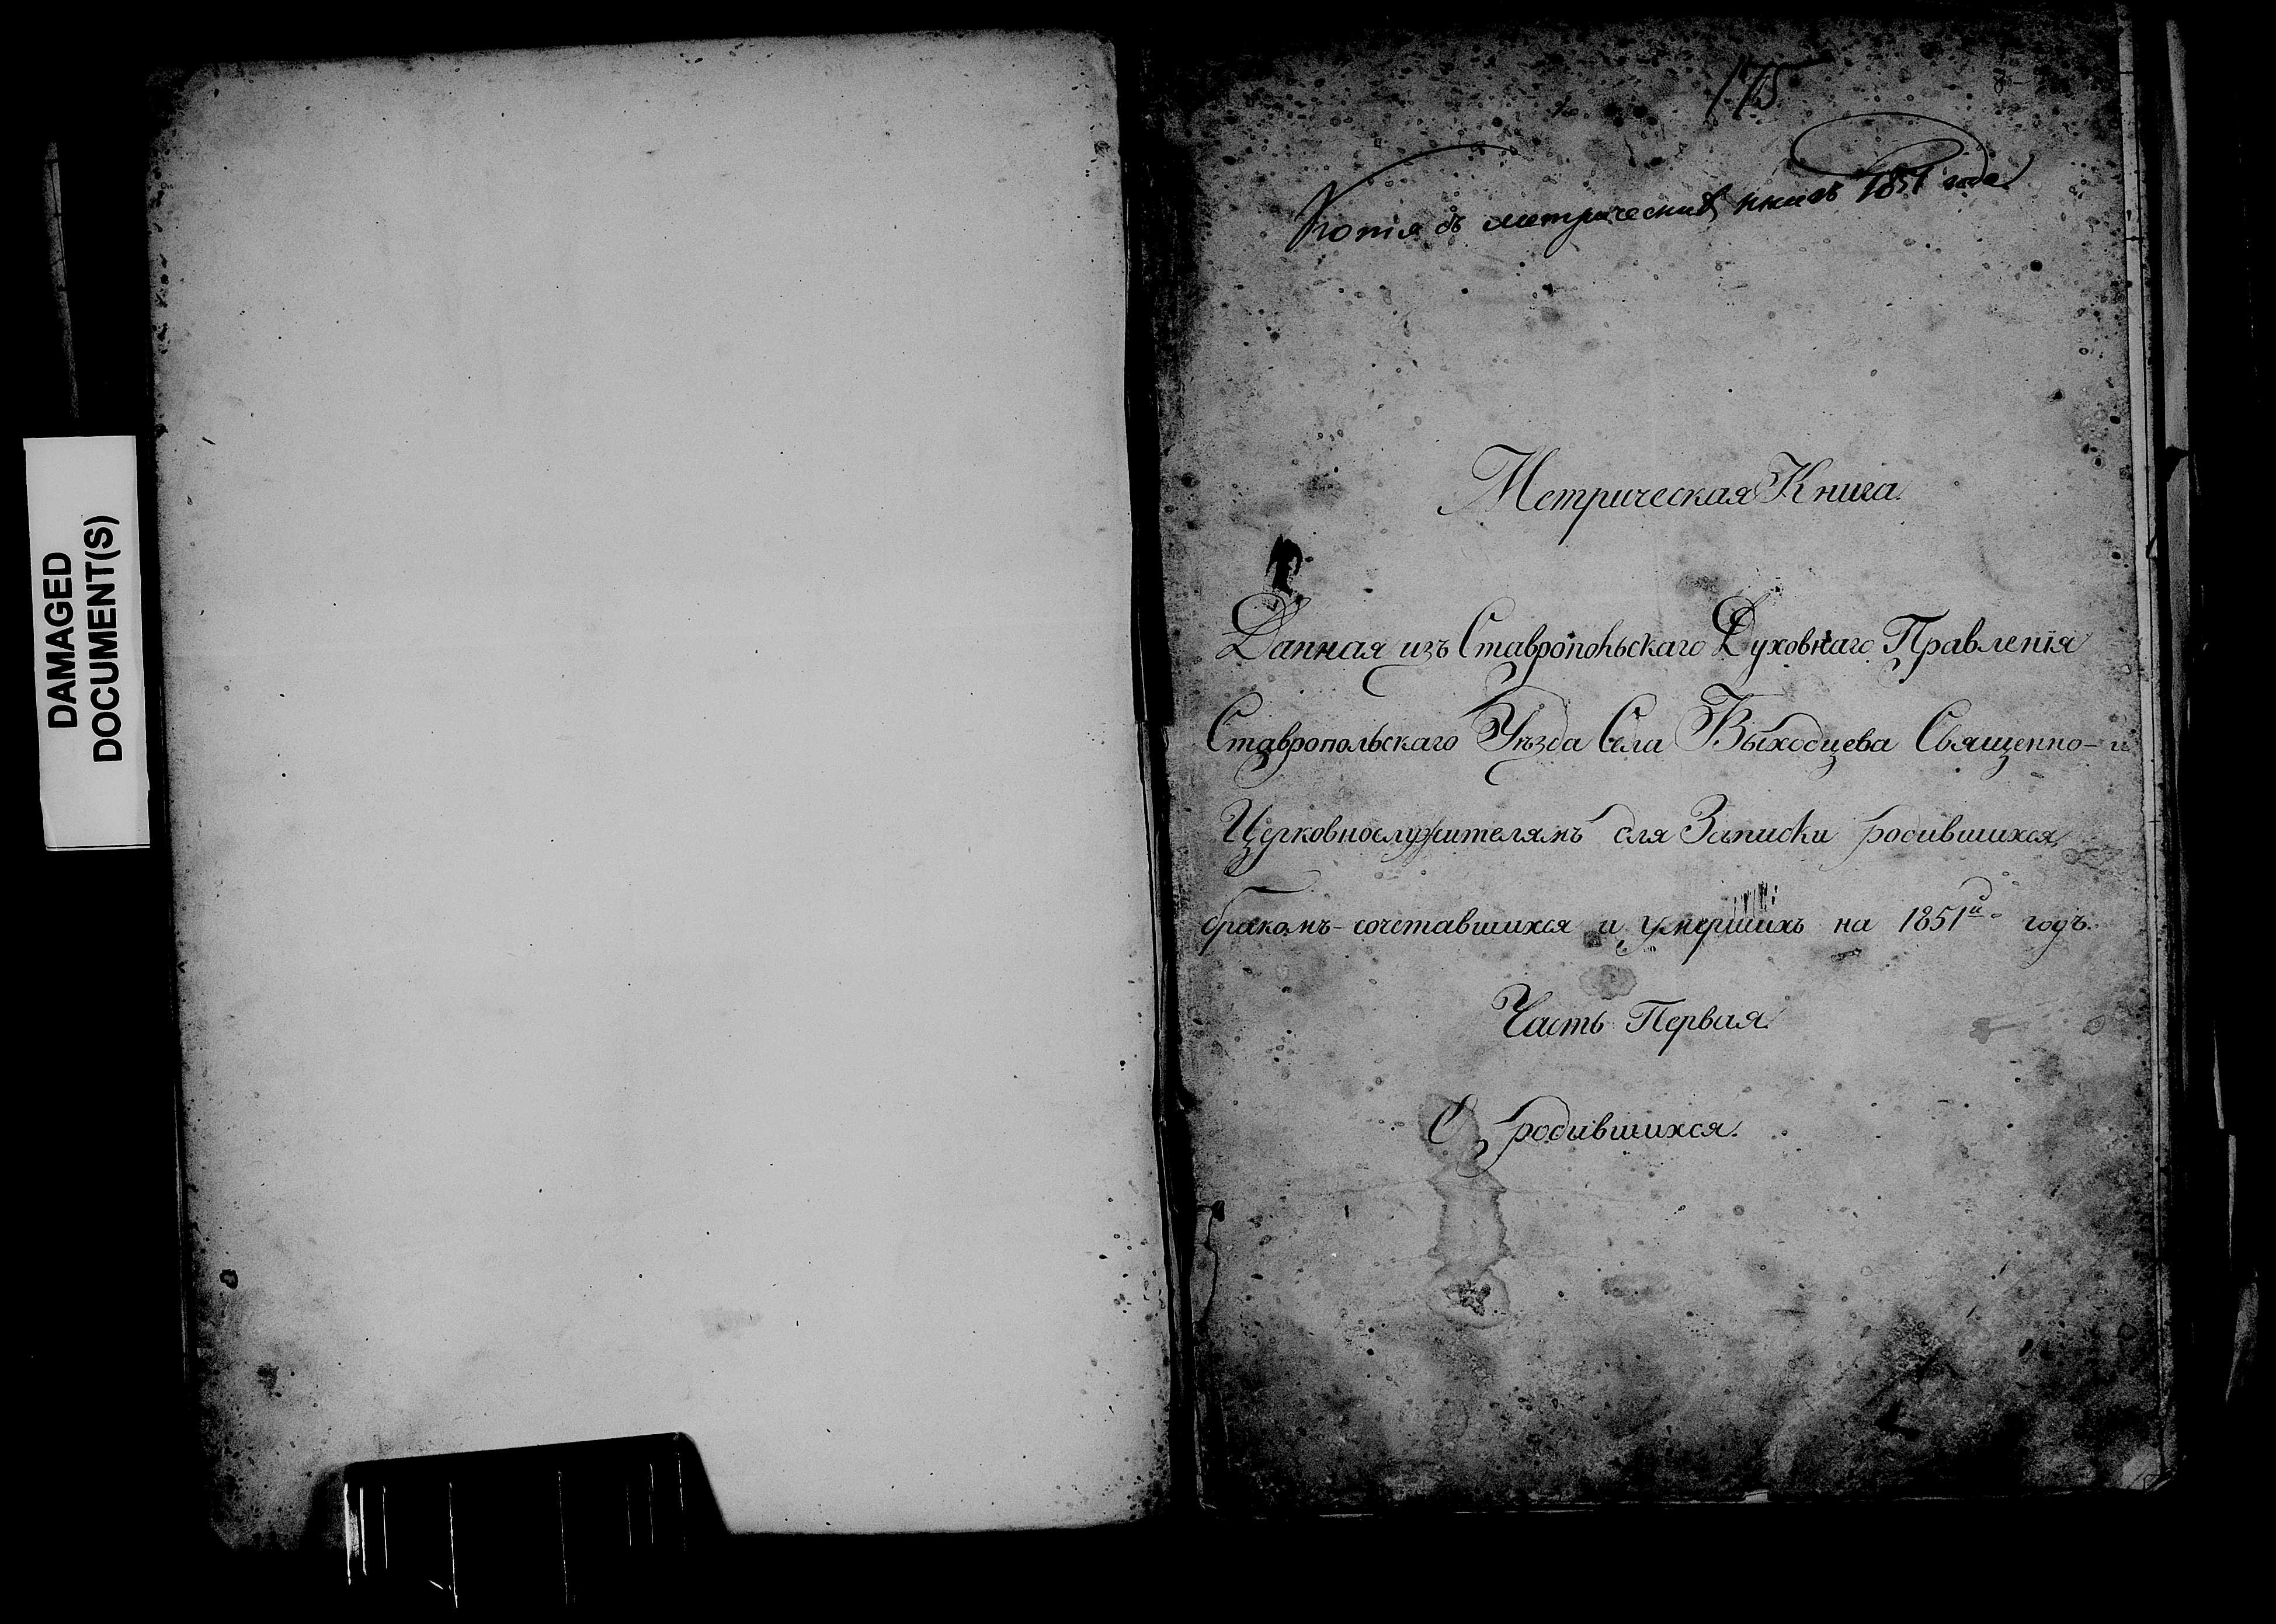 DAMAGED
DOCUMENT(S)
175
Копія съ метрическихъ книгъ 1851 года
Метрическая Книга
Данная изъ Ставропольскаго Духовнаго Правленія
Ставропольскаго Уѣзда Села Выходцева Священно- и
Церковнослужителямъ для Записки родившихся,
бракомъ-сочетавшихся и умершихъ на 1851й годъ.
Часть Первая
О родившихся.